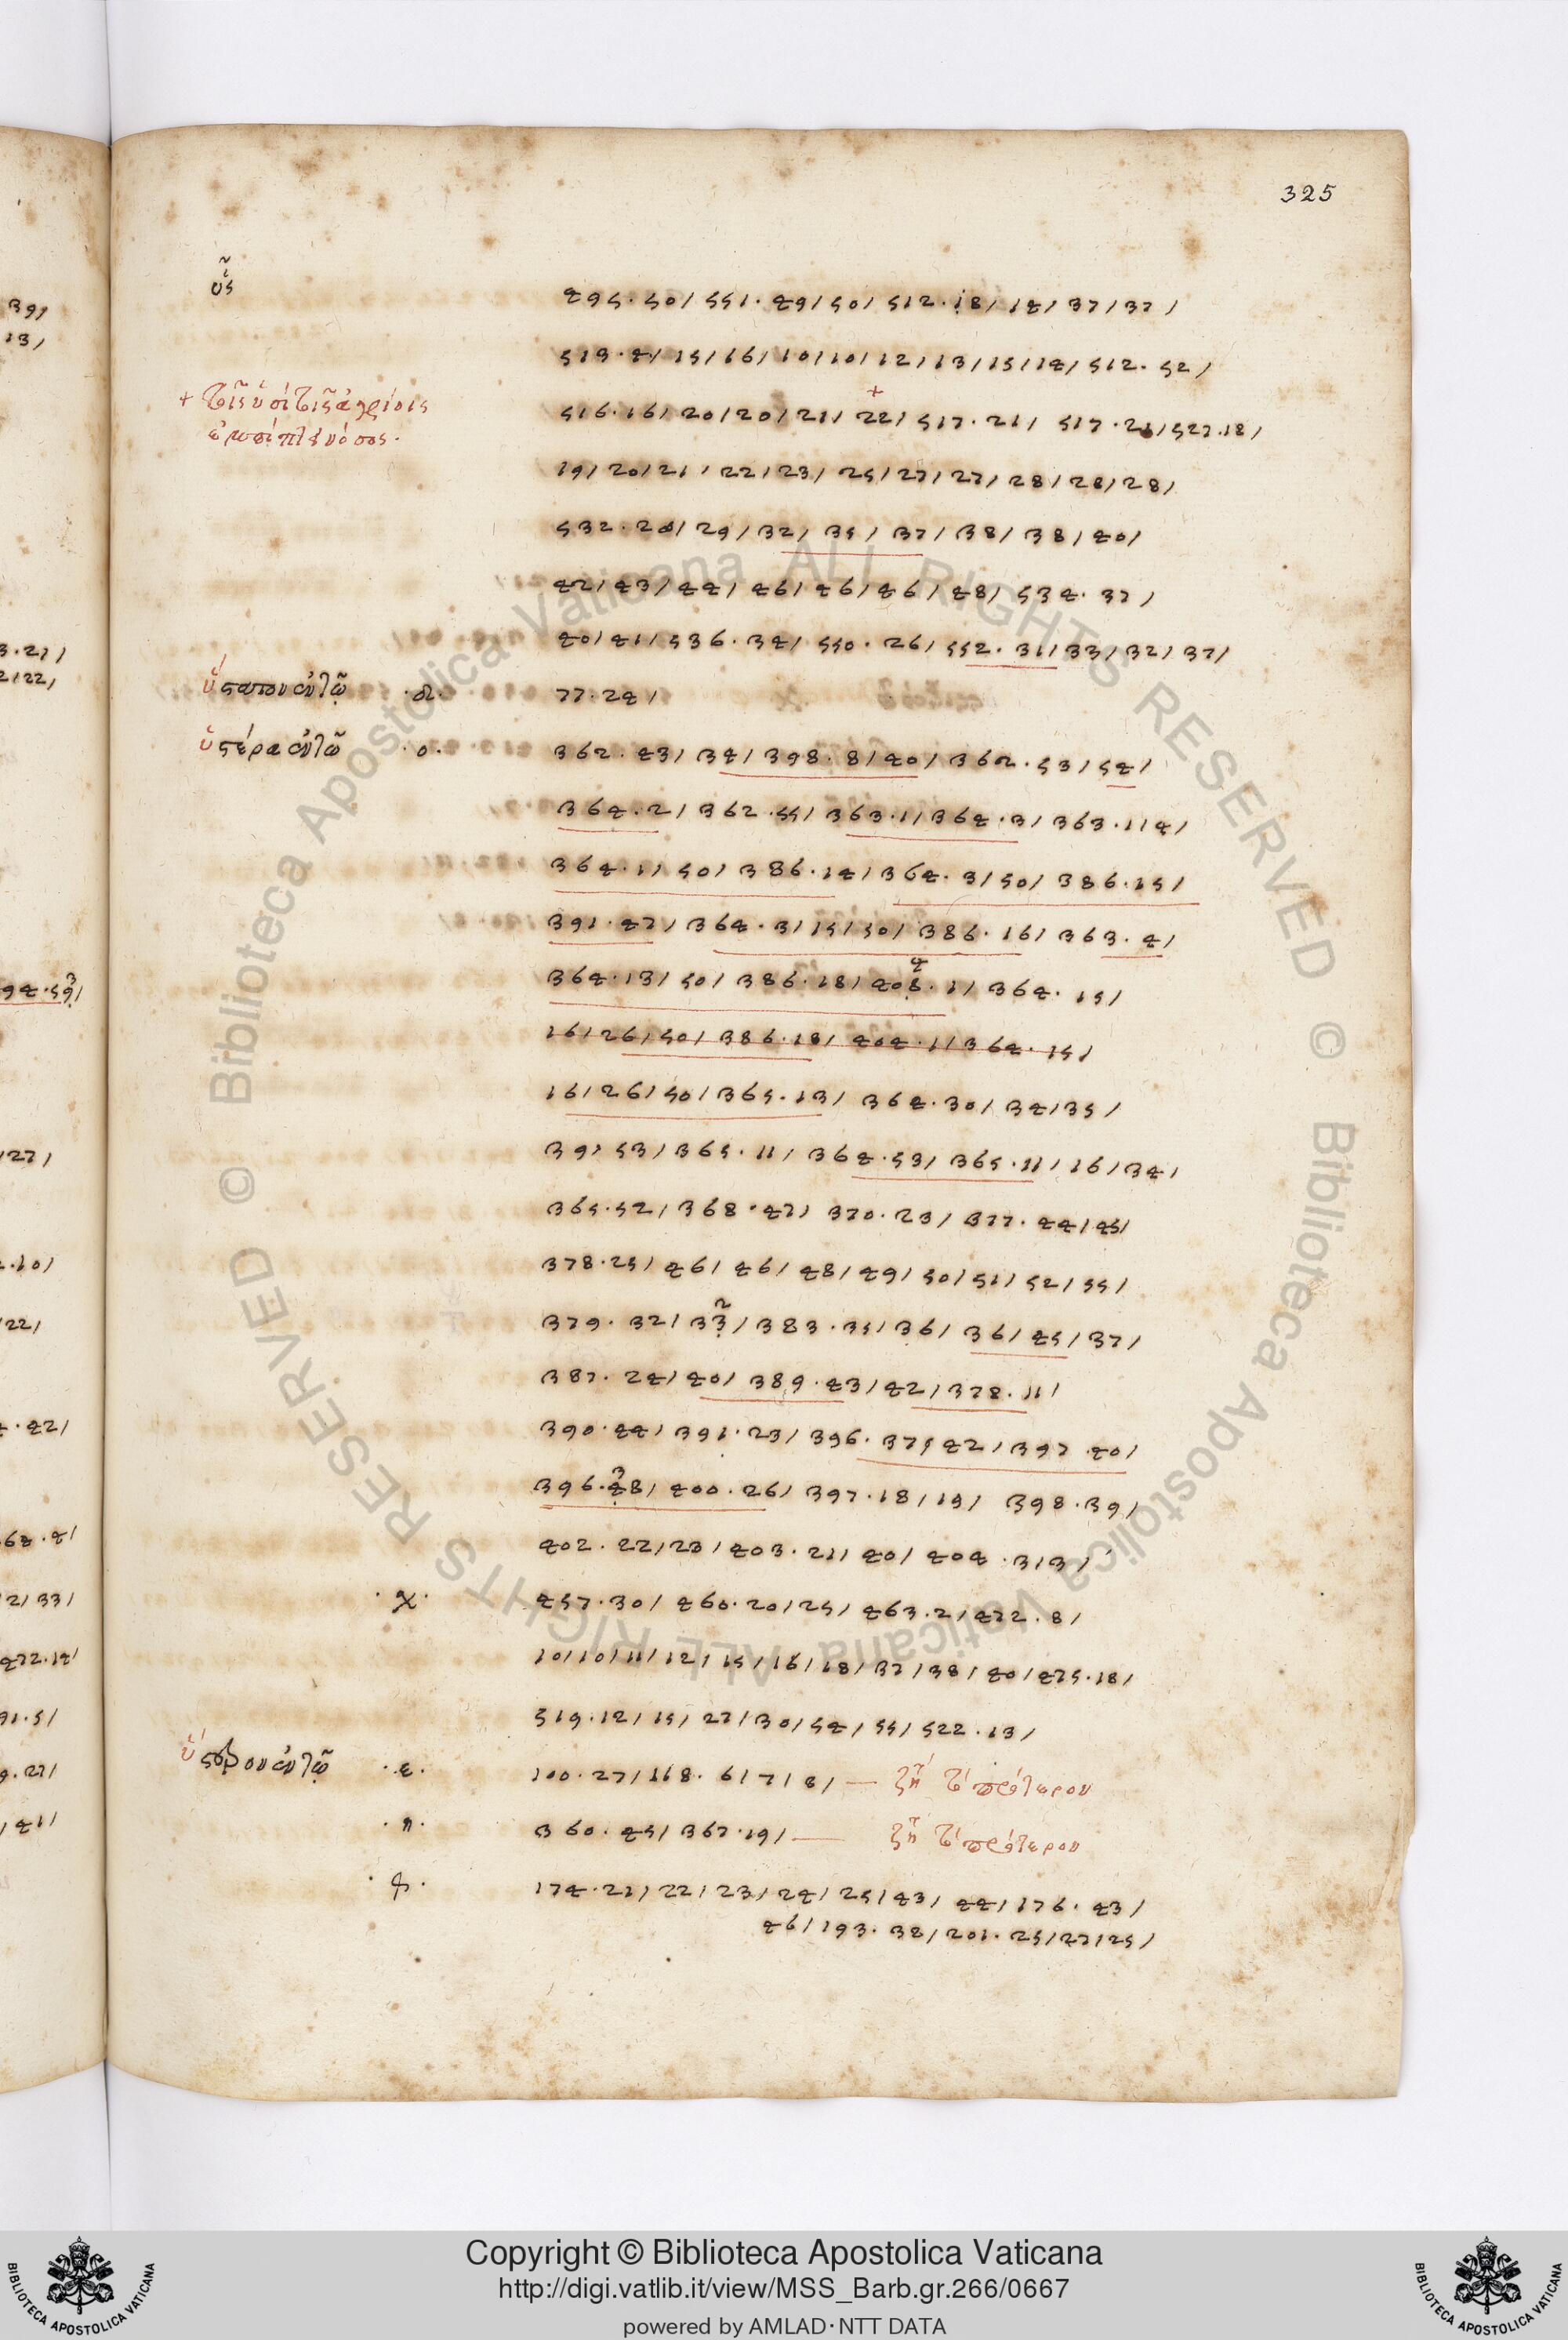 325
ὗς 495.50/ 551.49/50/ 512.18/ 14/ 37/37/
513.4/ 15/16/10/10/12/13/15/14/ 512.52/
+ 516.16/20/20/21/ 22/ 517.21/ 517.21/527.18/
19/20/21/ 22/23/ 25/27/27/ 28/28/28/
532.20/ 29/32/ 35/ 37/ 38/ 38/ 40/
42/43/44/ 46/46/46/ 48/ 534.37/
40/41/536.34/ 550.26/ 552.31/33/32/37/
·δ· 77.24/
ὑστέρα αὐτῷ ·ο· 362.43/ 34/ 398.8/40/ 362.53/54/
364.2/ 362.55/ 363.1/364.3/ 363.1/4/
364.1/ 50/ 386.14/ 364.3/50/ 386.15/
391.47/ 364.3/15/50/ 386.16/ 363.4/
364.13/ 50/ 386.18/ 408.1/ 364.15/
16/26/50/ 386.18/ 404.1/364.15/
16/26/50/365.13/ 364.30/34/35/
39/53/365.11/ 364.53/ 365.11/ 16/34/
365.52/ 368.47/ 370.23/ 377.44/45/
378.25/ 46/ 46/ 48/ 49/ 50/51/ 52/ 55/
379.32/33/ 383.35/36/ 36/45/ 37/
387.24/40/ 389.43/42/378.11/
390.44/ 391.23/ 396.37/42/ 397.40/
396.48/ 400.26/ 397.18/19/ 398.39/
402.22/23/403.21/40/ 404.3/3/
·χ· 457.30/ 460.20/25/ 463.2/472.8/
10/10/11/12/15/16/18/37/38/40/475.18/
519.12/15/27/30/54/55/522.13/
ὕστερον αὐτῷ ·ε· 100.27/168.6/7/8/ — ζή τ πρότερον
·η· 360.45/367.19/ — ζή τ πρότερον
·φ· 174.21/22/23/24/25/43/ 44/176.43/
46/193.38/201.25/27/25/
Copyright © Biblioteca Apostolica Vaticana
http://digi.vatlib.it/view/MSS_Barb.gr.266/0667
powered by AMLAD·NTT DATA